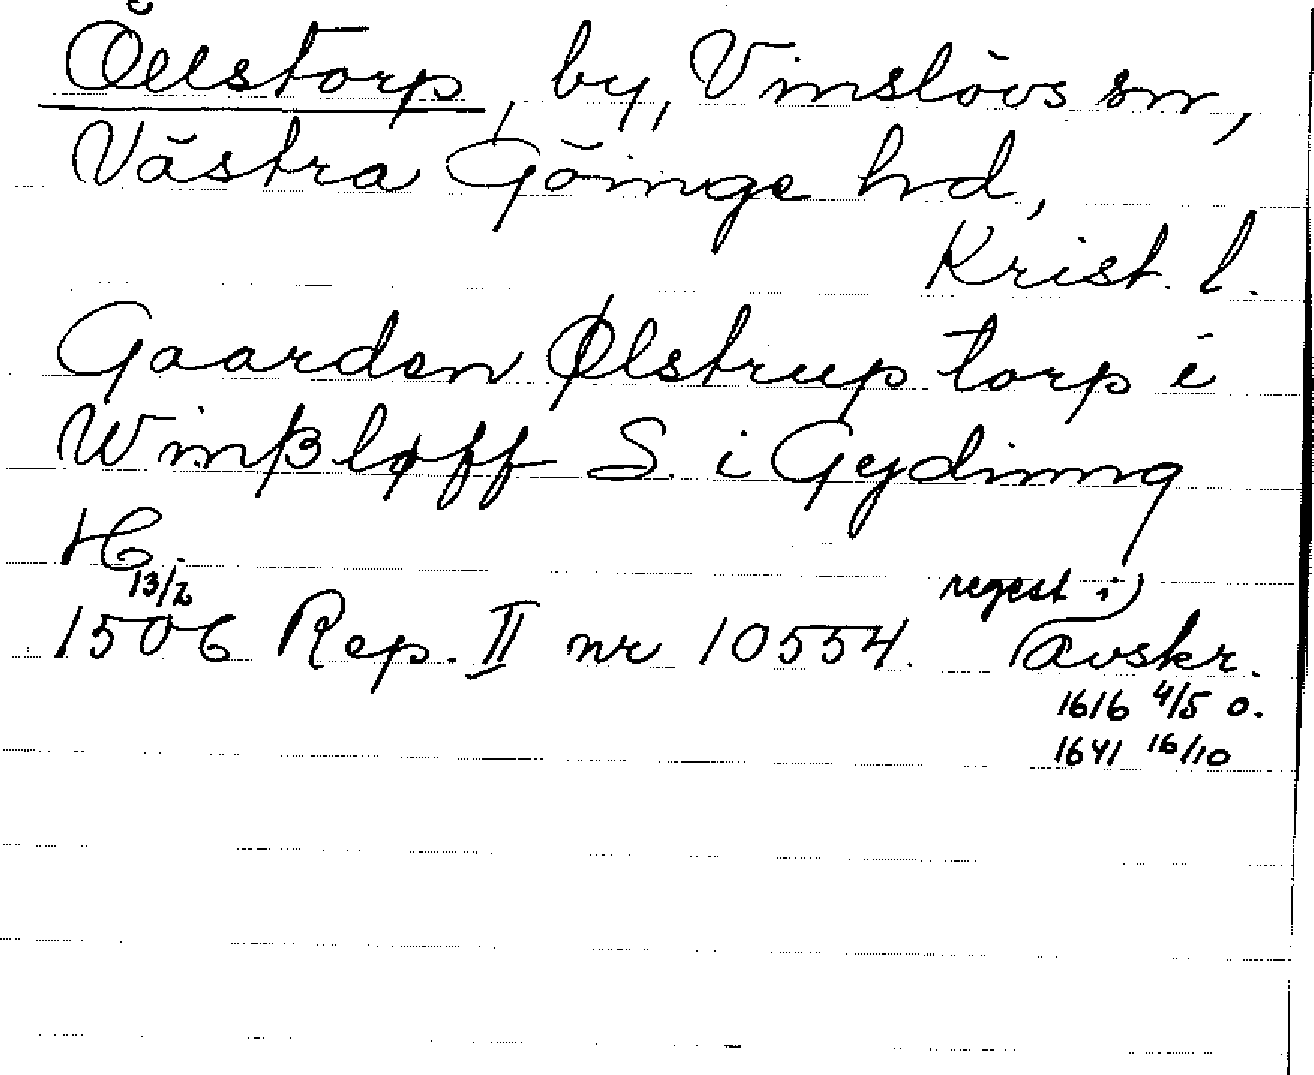 Öllstorp, by, Vinslövs sn,
Västra Göinge hd,
Krist. l.
Gaarden Ølstrup torp i
Winßløff S. i Gydinng
H.
13/2 regest i)
1506 Rep. II nr 10554. avskr.
1616 4/5 o.
1641 16/10